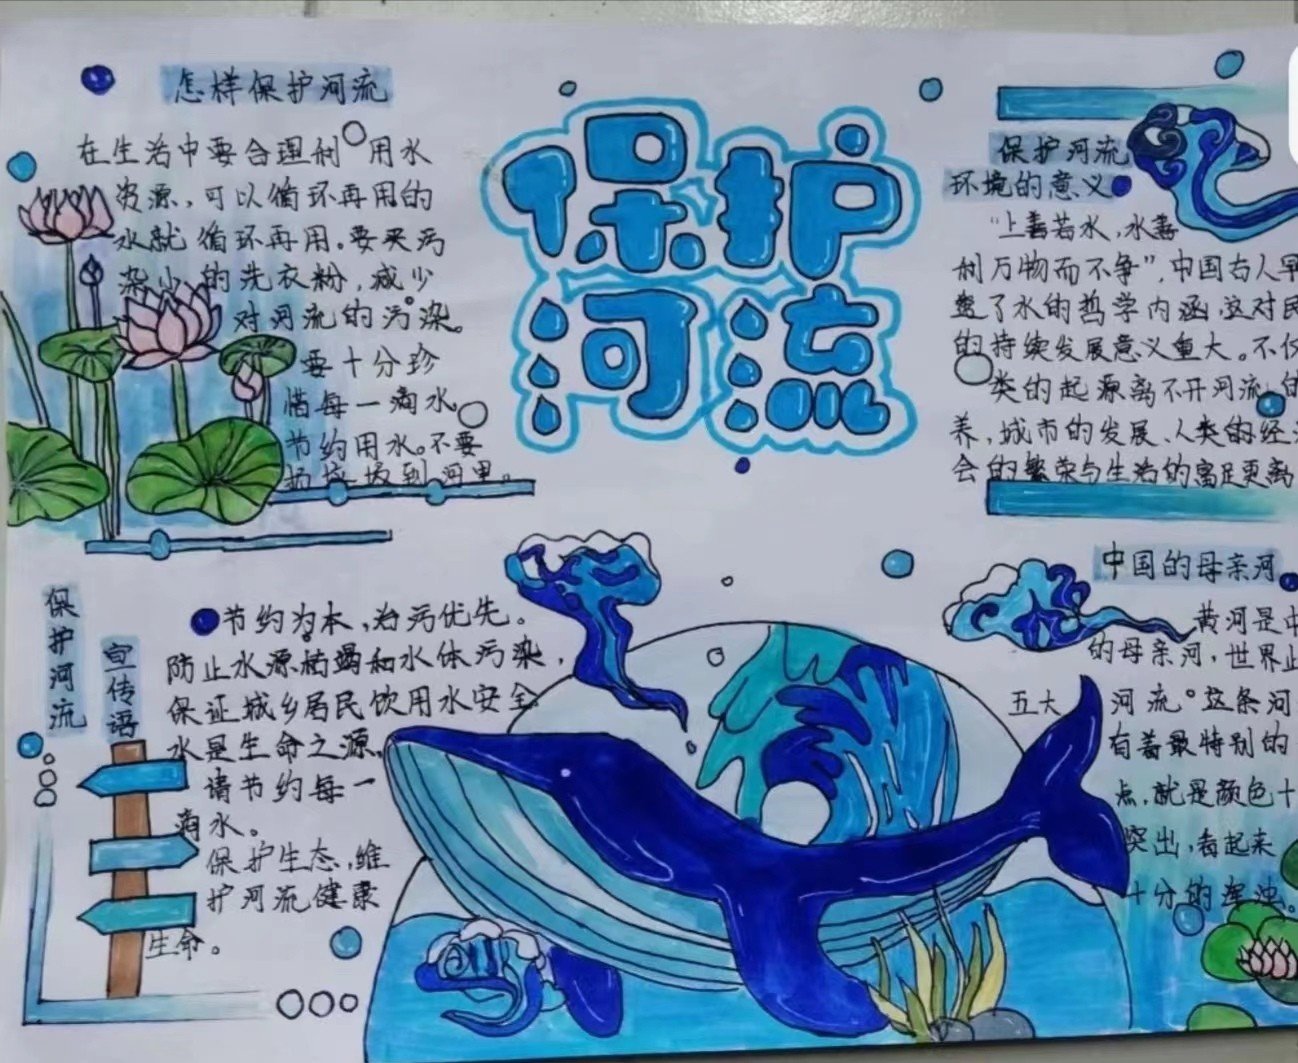 怎样保护河流
在生活中要合理利用水
资源,可以循环再用的
水就循环再用。要买污
染小的洗衣粉,减少
对河流的污染。
要十分珍
惜每一滴水
节约用水。不要
把垃圾到河里。
保护
河流
保护河流
环境的意义
“上善若水,水善
利万物而不争”,中国古人早
了水的哲学内涵,这对民
的持续发展意义重大。不仅
类的起源离不开河流的
养,城市的发展、人类的经
会的繁荣与生活的富足更离
保护河流
宣传语
节约为本,治污优先。
防止水源枯竭和水体污染,
保证城乡居民饮用水安全
水是生命之源
请节约每一
滴水。
保护生态,维
护河流健康
生命。
中国的母亲河
黄河是中
的母亲河,世界
五大河流。这条河
有着最特别的
点,就是颜色十
突出,看起来
十分的浑浊。